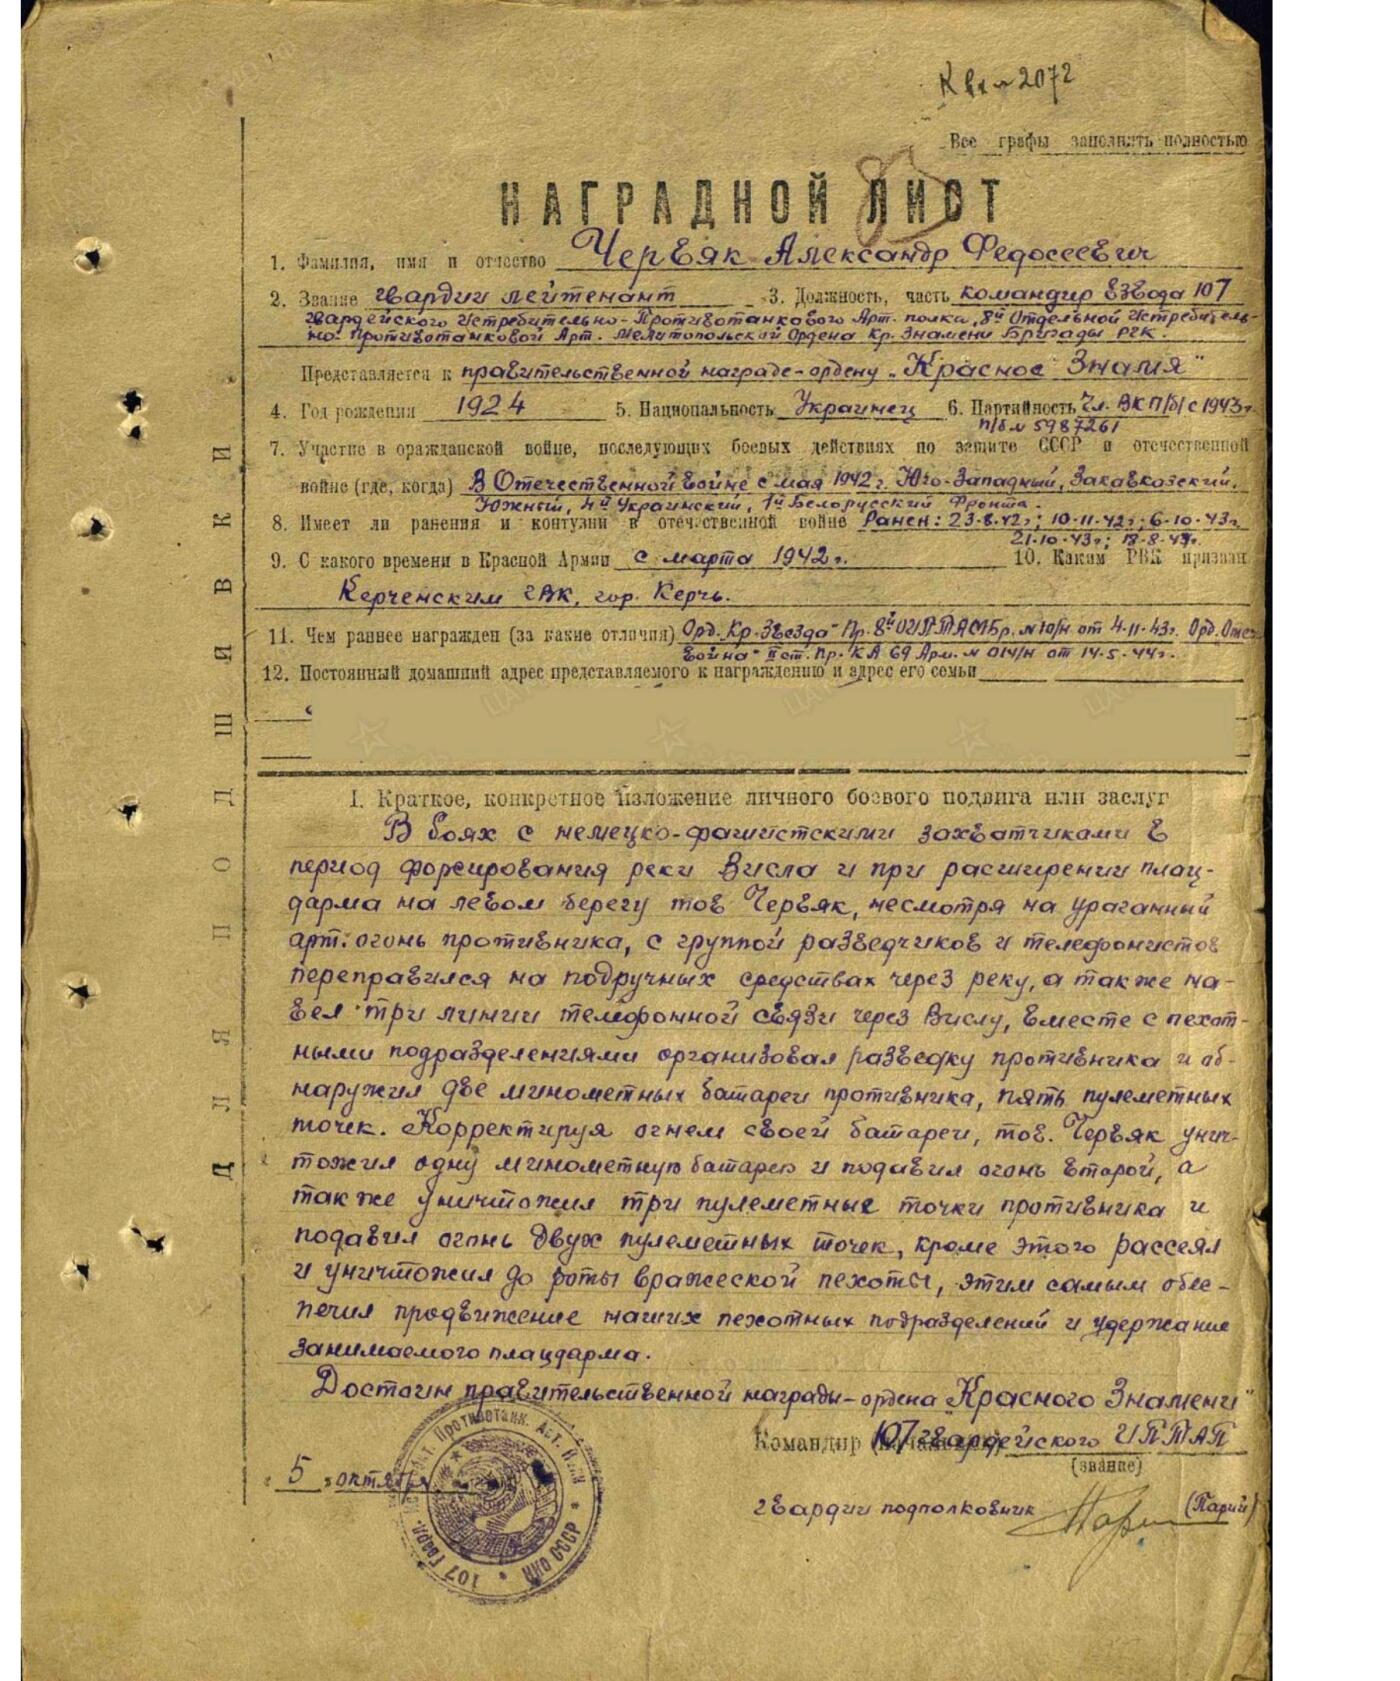 К вх № 2072
Все графы заполнять полностью
НАГРАДНОЙ ЛИСТ
1. Фамилия, имя и отчество Червяк Александр Федосеевич
2. Звание гвардии лейтенант 3. Должность, часть командир взвода 107
гвардейского Истребительно-Противотанкового Арт. полка, 8й Отдельной Истребитель-
но-Противотанковой Арт. Мелитопольской Ордена Кр. Знамени Бригады РГК.
Представляется к правительственной награде-ордену „Красное Знамя"
4. Год рождения 1924 5. Национальность Украинец 6. Партийность Чл. ВКП/б/ с 1943г.
п/б № 5987261
7. Участие в гражданской войне, последующих боевых действиях по защите СССР и отечественной
войне (где, когда) В Отечественной войне с мая 1942 г. Юго-Западный, Закавказский,
Южный, 4й Украинский, 1й Белорусский Фронта.
8. Имеет ли ранения и контузии в отечественной войне Ранен: 23-8-42г; 10-11-42г; 6-10-43г.
21-10-43г; 18-8-44г.
9. С какого времени в Красной Армии с марта 1942 г. 10. Каким РВК призван
Керченским ГВК, гор. Керчь.
11. Чем раннее награжден (за какие отличия) Орд. „Кр. Звезда" Пр. 8й ОИПТАМБр. № 10/н от 4-11-43г. Орд. Отеч.
Война" II ст. Пр. КА 69 Арм. № 014/н от 14-5-44г.
12. Постоянный домашний адрес представляемого к награждению и адрес его семьи
ДЛЯ ПОДШИВКИ
I. Краткое, конкретное изложение личного боевого подвига или заслуг
В боях с немецко-фашистскими захватчиками в
период форсирования реки Висла и при расширении плац-
дарма на левом берегу тов Червяк, несмотря на ураганный
арт. огонь противника, с группой разведчиков и телефонистов
переправился на подручных средствах через реку, а также на-
вел три линии телефонной связи через Вислу, вместе с пехот-
ными подразделениями организовал разведку противника и об-
наружил две минометных батареи противника, пять пулеметных
точек. Корректируя огнем своей батареи, тов. Червяк унич-
тожил одну минометную батарею и подавил огонь второй, а
также уничтожил три пулеметные точки противника и
подавил огонь двух пулеметных точек, кроме этого рассеял
и уничтожил до роты вражеской пехоты, этим самым обес-
печил продвижение наших пехотных подразделений и удержание
занимаемого плацдарма.
Достоин правительственной награды-ордена „Красного Знамени"
Командир (начальник) 107 гвардейского ИПТАП
(звание)
„5" октября
гвардии подполковник (Парий)
107 Гвард. Противотанк. Арт. НКО СССР